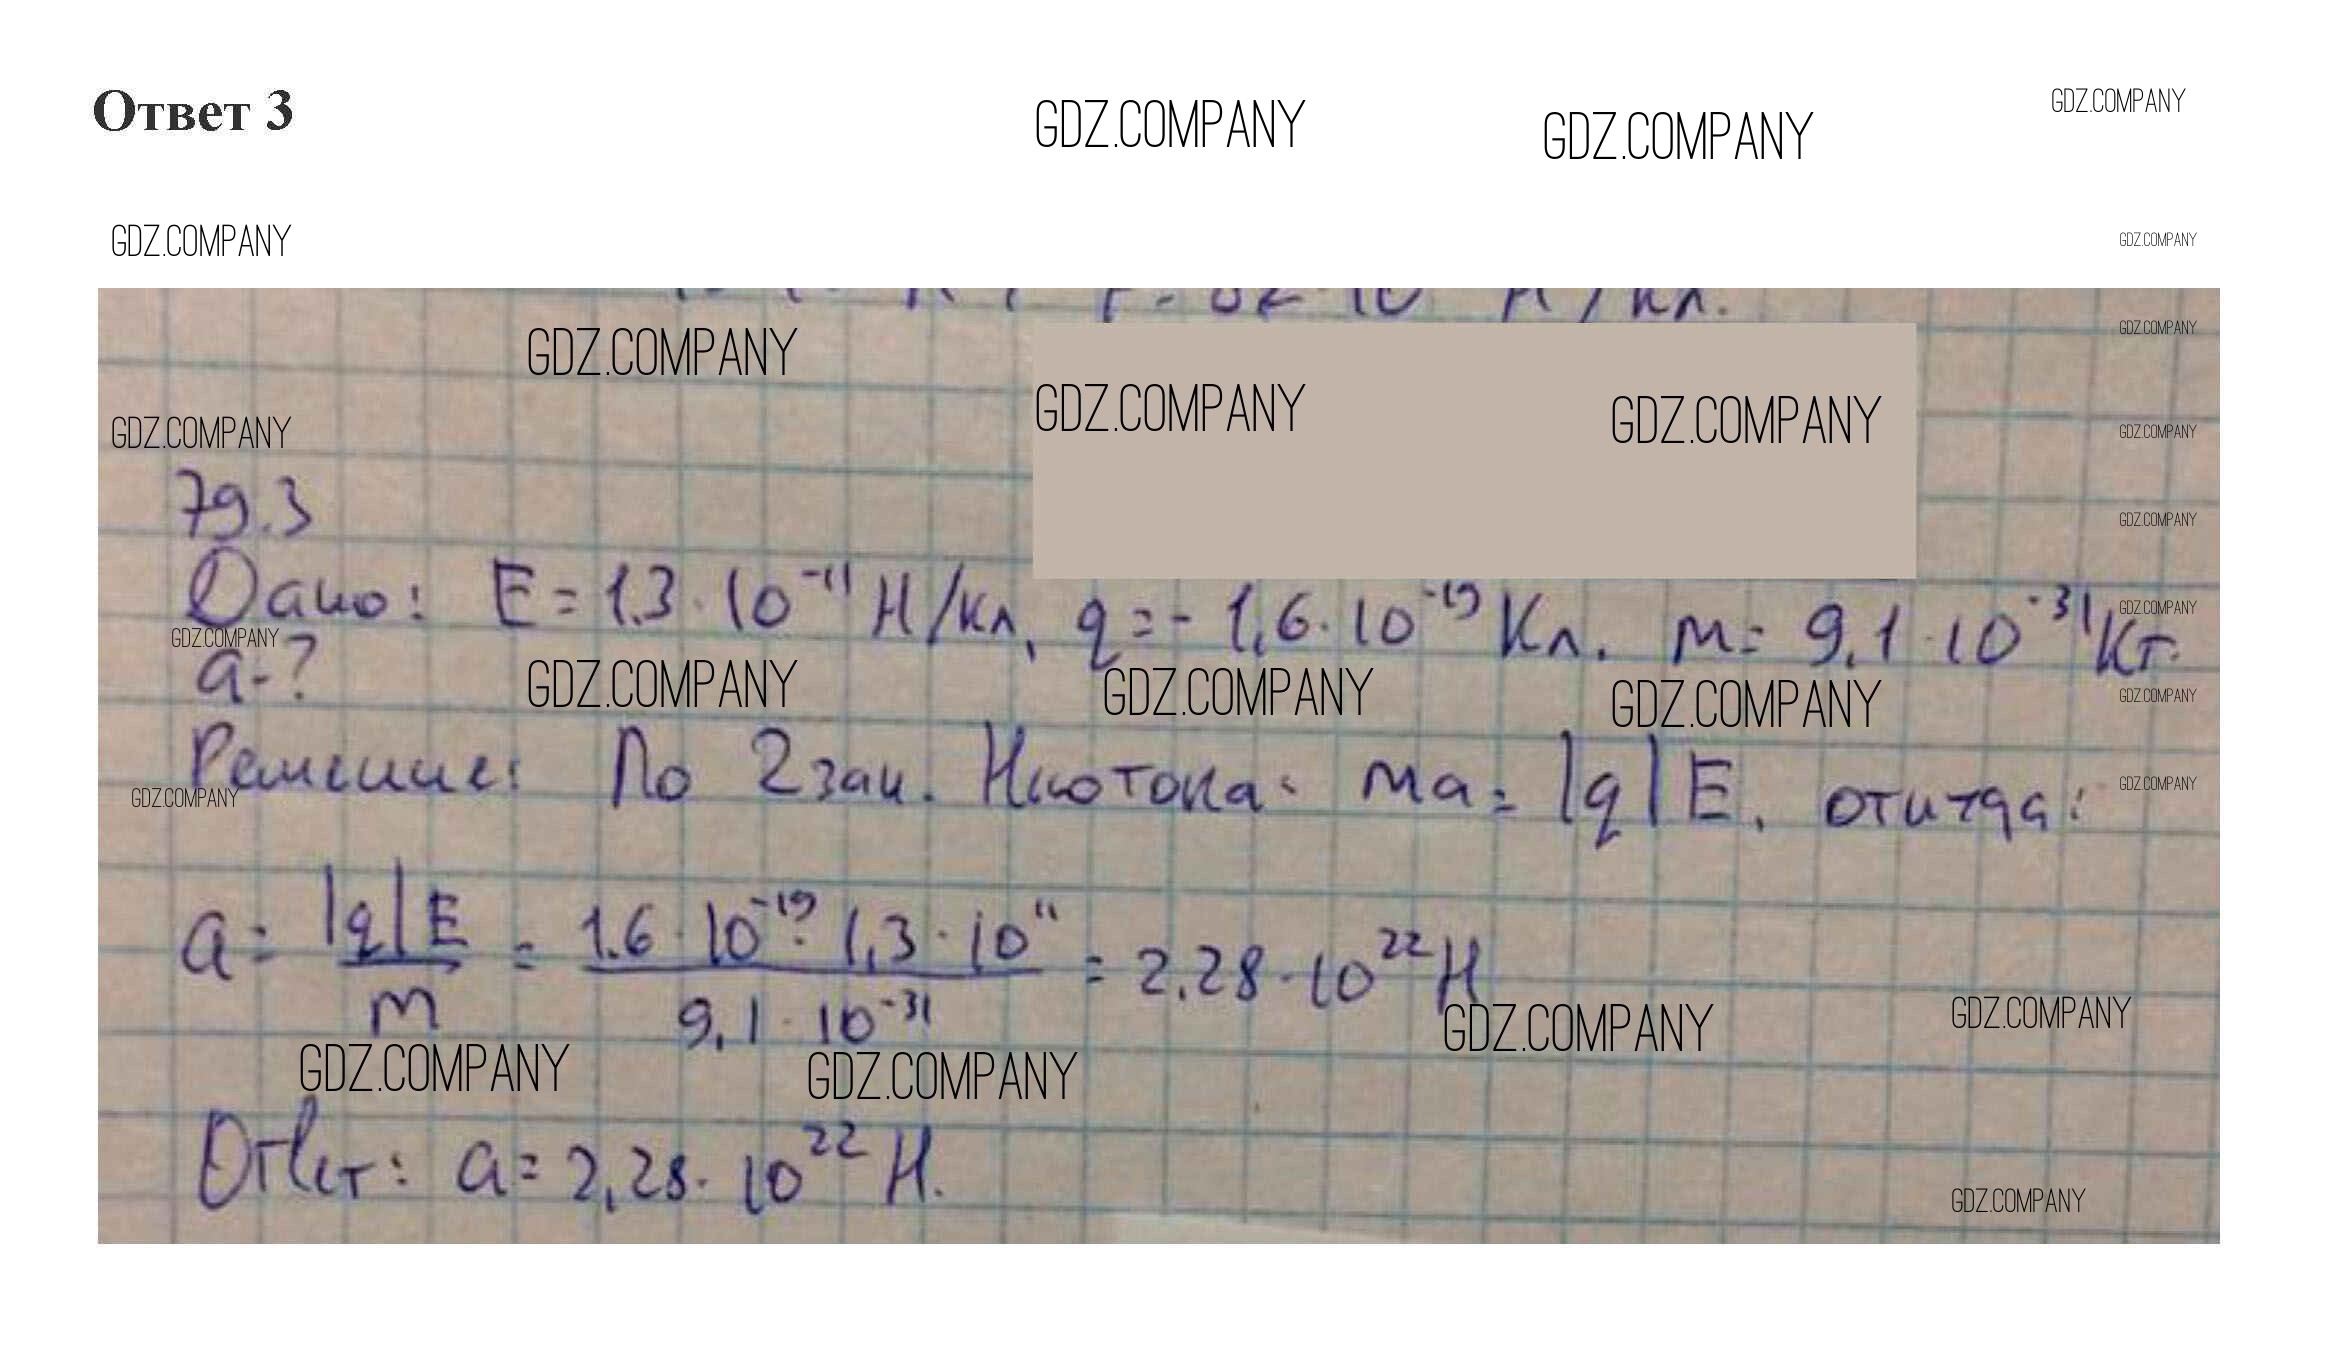 Ответ 3
GDZ.COMPANY GDZ.COMPANY GDZ.COMPANY
GDZ.COMPANY GDZ.COMPANY
GDZ.COMPANY GDZ.COMPANY
GDZ.COMPANY GDZ.COMPANY GDZ.COMPANY GDZ.COMPANY
79.3
GDZ.COMPANY
Дано: E = 1.3 · 10⁻¹¹ Н/кл, q = - 1,6 · 10⁻¹⁹ Кл. m = 9,1 · 10⁻³¹ Кг.
GDZ.COMPANY GDZ.COMPANY
a - ?
GDZ.COMPANY GDZ.COMPANY GDZ.COMPANY GDZ.COMPANY
Решение: По 2 зак. Ньютона: ma = |q| E, откуда:
GDZ.COMPANY GDZ.COMPANY
a = |q| E / m = 1.6 · 10⁻¹⁹ · 1,3 · 10¹¹ / 9,1 · 10⁻³¹ = 2,28 · 10²² Н
GDZ.COMPANY GDZ.COMPANY GDZ.COMPANY GDZ.COMPANY
Ответ: a = 2,28 · 10²² Н.
GDZ.COMPANY